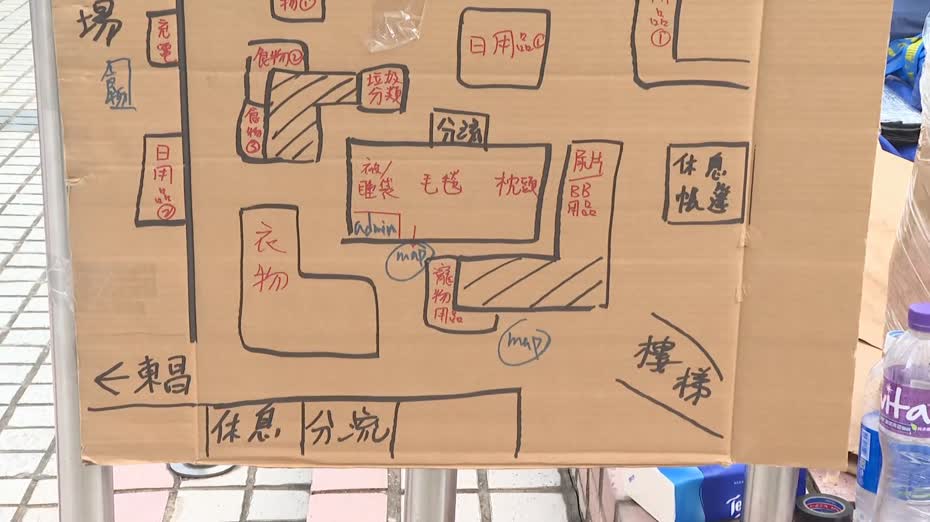 場
食物
充電
物①
食物②
食物③
垃圾
分類
日用品①
品①
日用品②
分流
被/
睡袋
毛毯
枕頭
admin
map
尿片
/BB
用品
休息
帳篷
衣
物
寵
物
用品
map
樓梯
←東昌
休息
分流
vita
Te